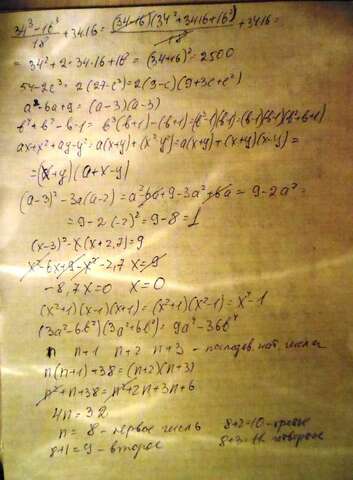 34³-16³/18 + 34·16 = (34-16)(34²+34·16+16²)/18 + 34·16 =
= 34² + 2·34·16 + 16² = (34+16)² = 2500
54-2c³ = 2(27-c³) = 2(3-c)(9+3c+c²)
a²-6a+9 = (a-3)(a-3)
ax+x²+ay-y² = a(x+y)+(x²-y²) = a(x+y)+(x+y)(x-y) =
=(x+y)(a+x-y)
(a-3)²-3a(a-2) = a²-6a+9-3a²+6a = 9-2a² =
= 9-2(-2)² = 9-8 = 1
(x-3)²-x(x+2,7)=9
x²-6x+9-x²-2,7x=9
-8,7x=0 x=0
(x²+1)(x-1)(x+1)=(x²+1)(x²-1)=x⁴-1
(3a²-6b²)(3a²+6b²)=9a⁴-36b⁴
n n+1 n+2 n+3 - последов. нат. числа
n(n+1)+38=(n+2)(n+3)
n²+n+38=n²+2n+3n+6
4n=32
n=8 - первое число 8+2=10 - третье
8+1=9 - второе 8+3=11 четвертое